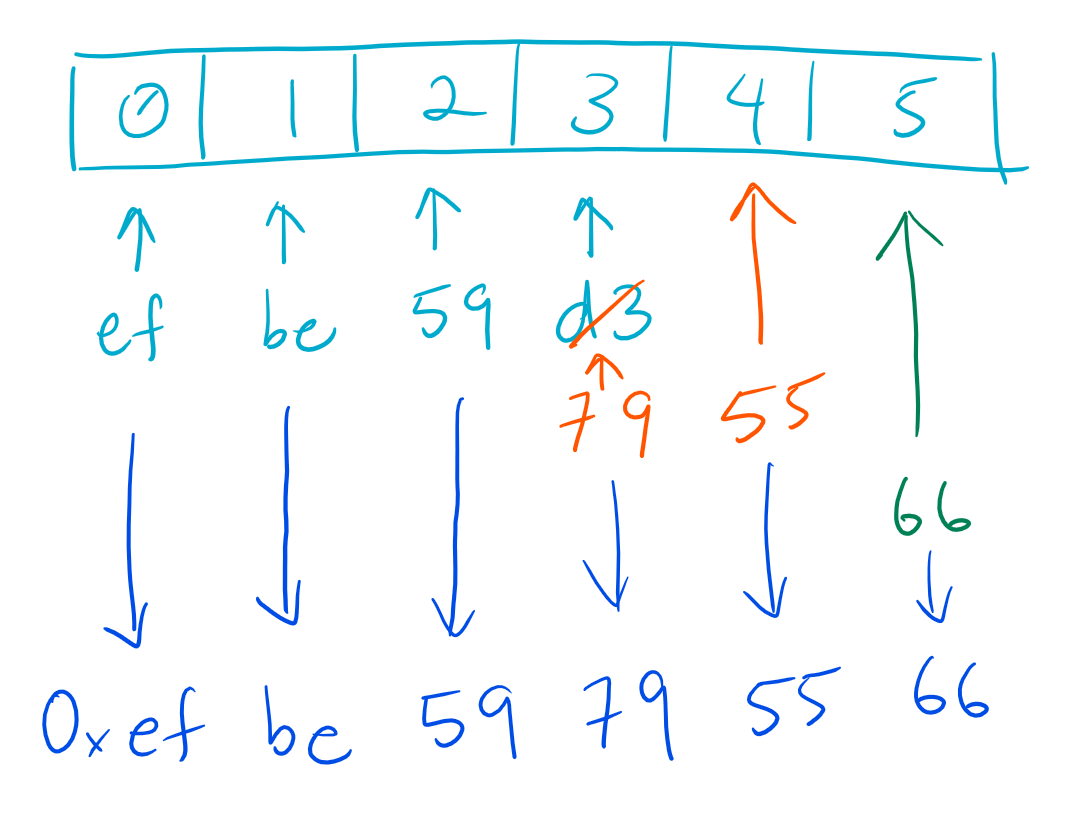 0 1 2 3 4 5
ef be 59 d3
79 55
66
0xef be 59 79 55 66